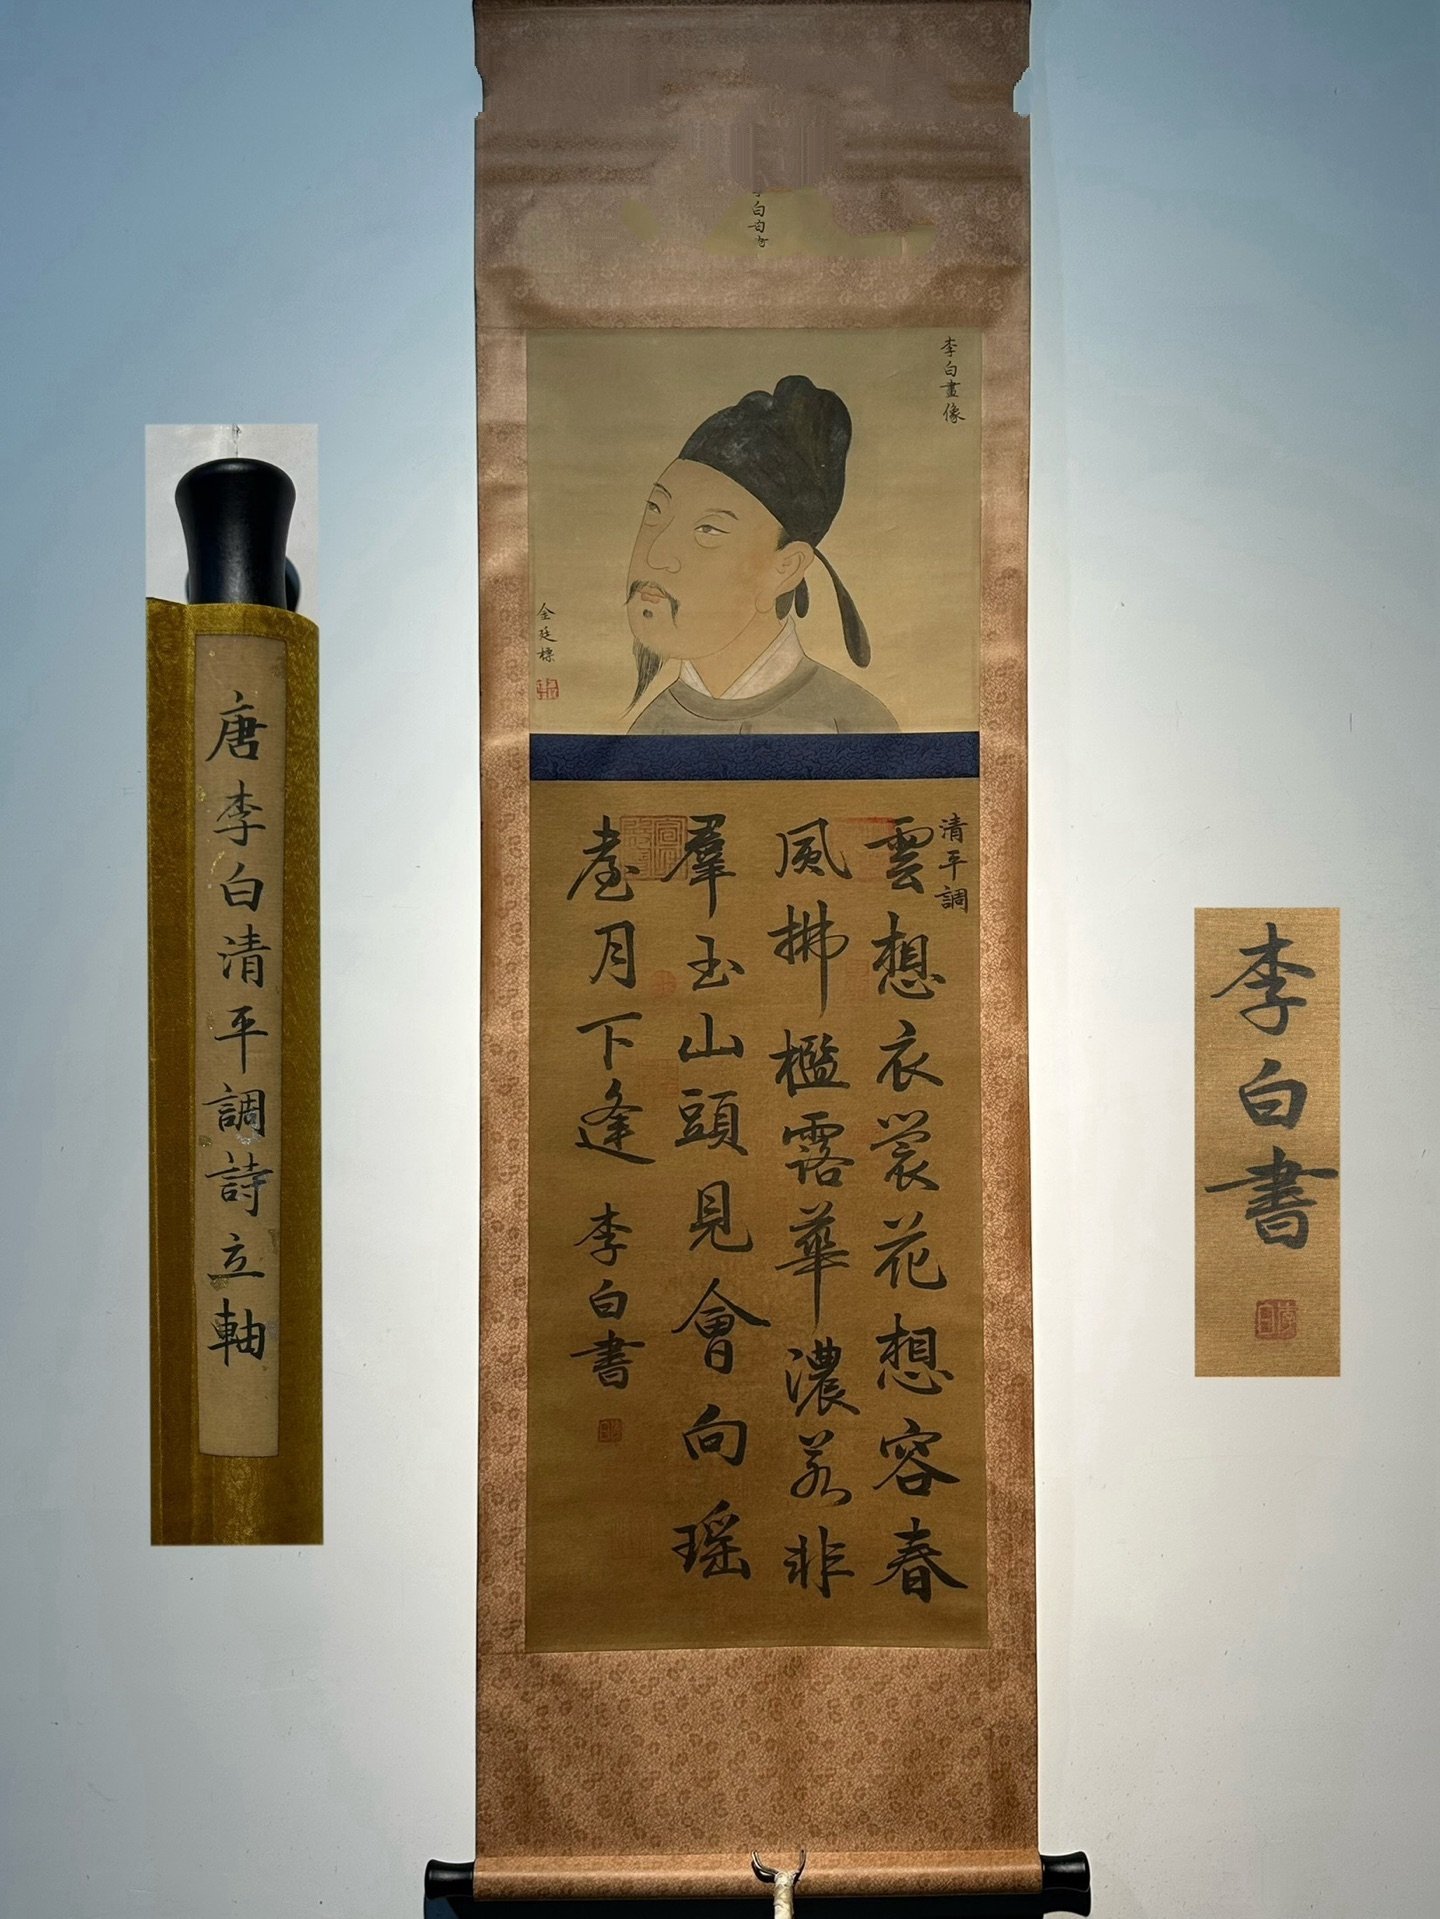 李白画像
仝廷標
清平調
雲想衣裳花想容春
風拂檻露華濃若非
羣玉山頭見會向瑶
臺月下逢 李白書
唐李白清平調詩立軸
李白書
李白